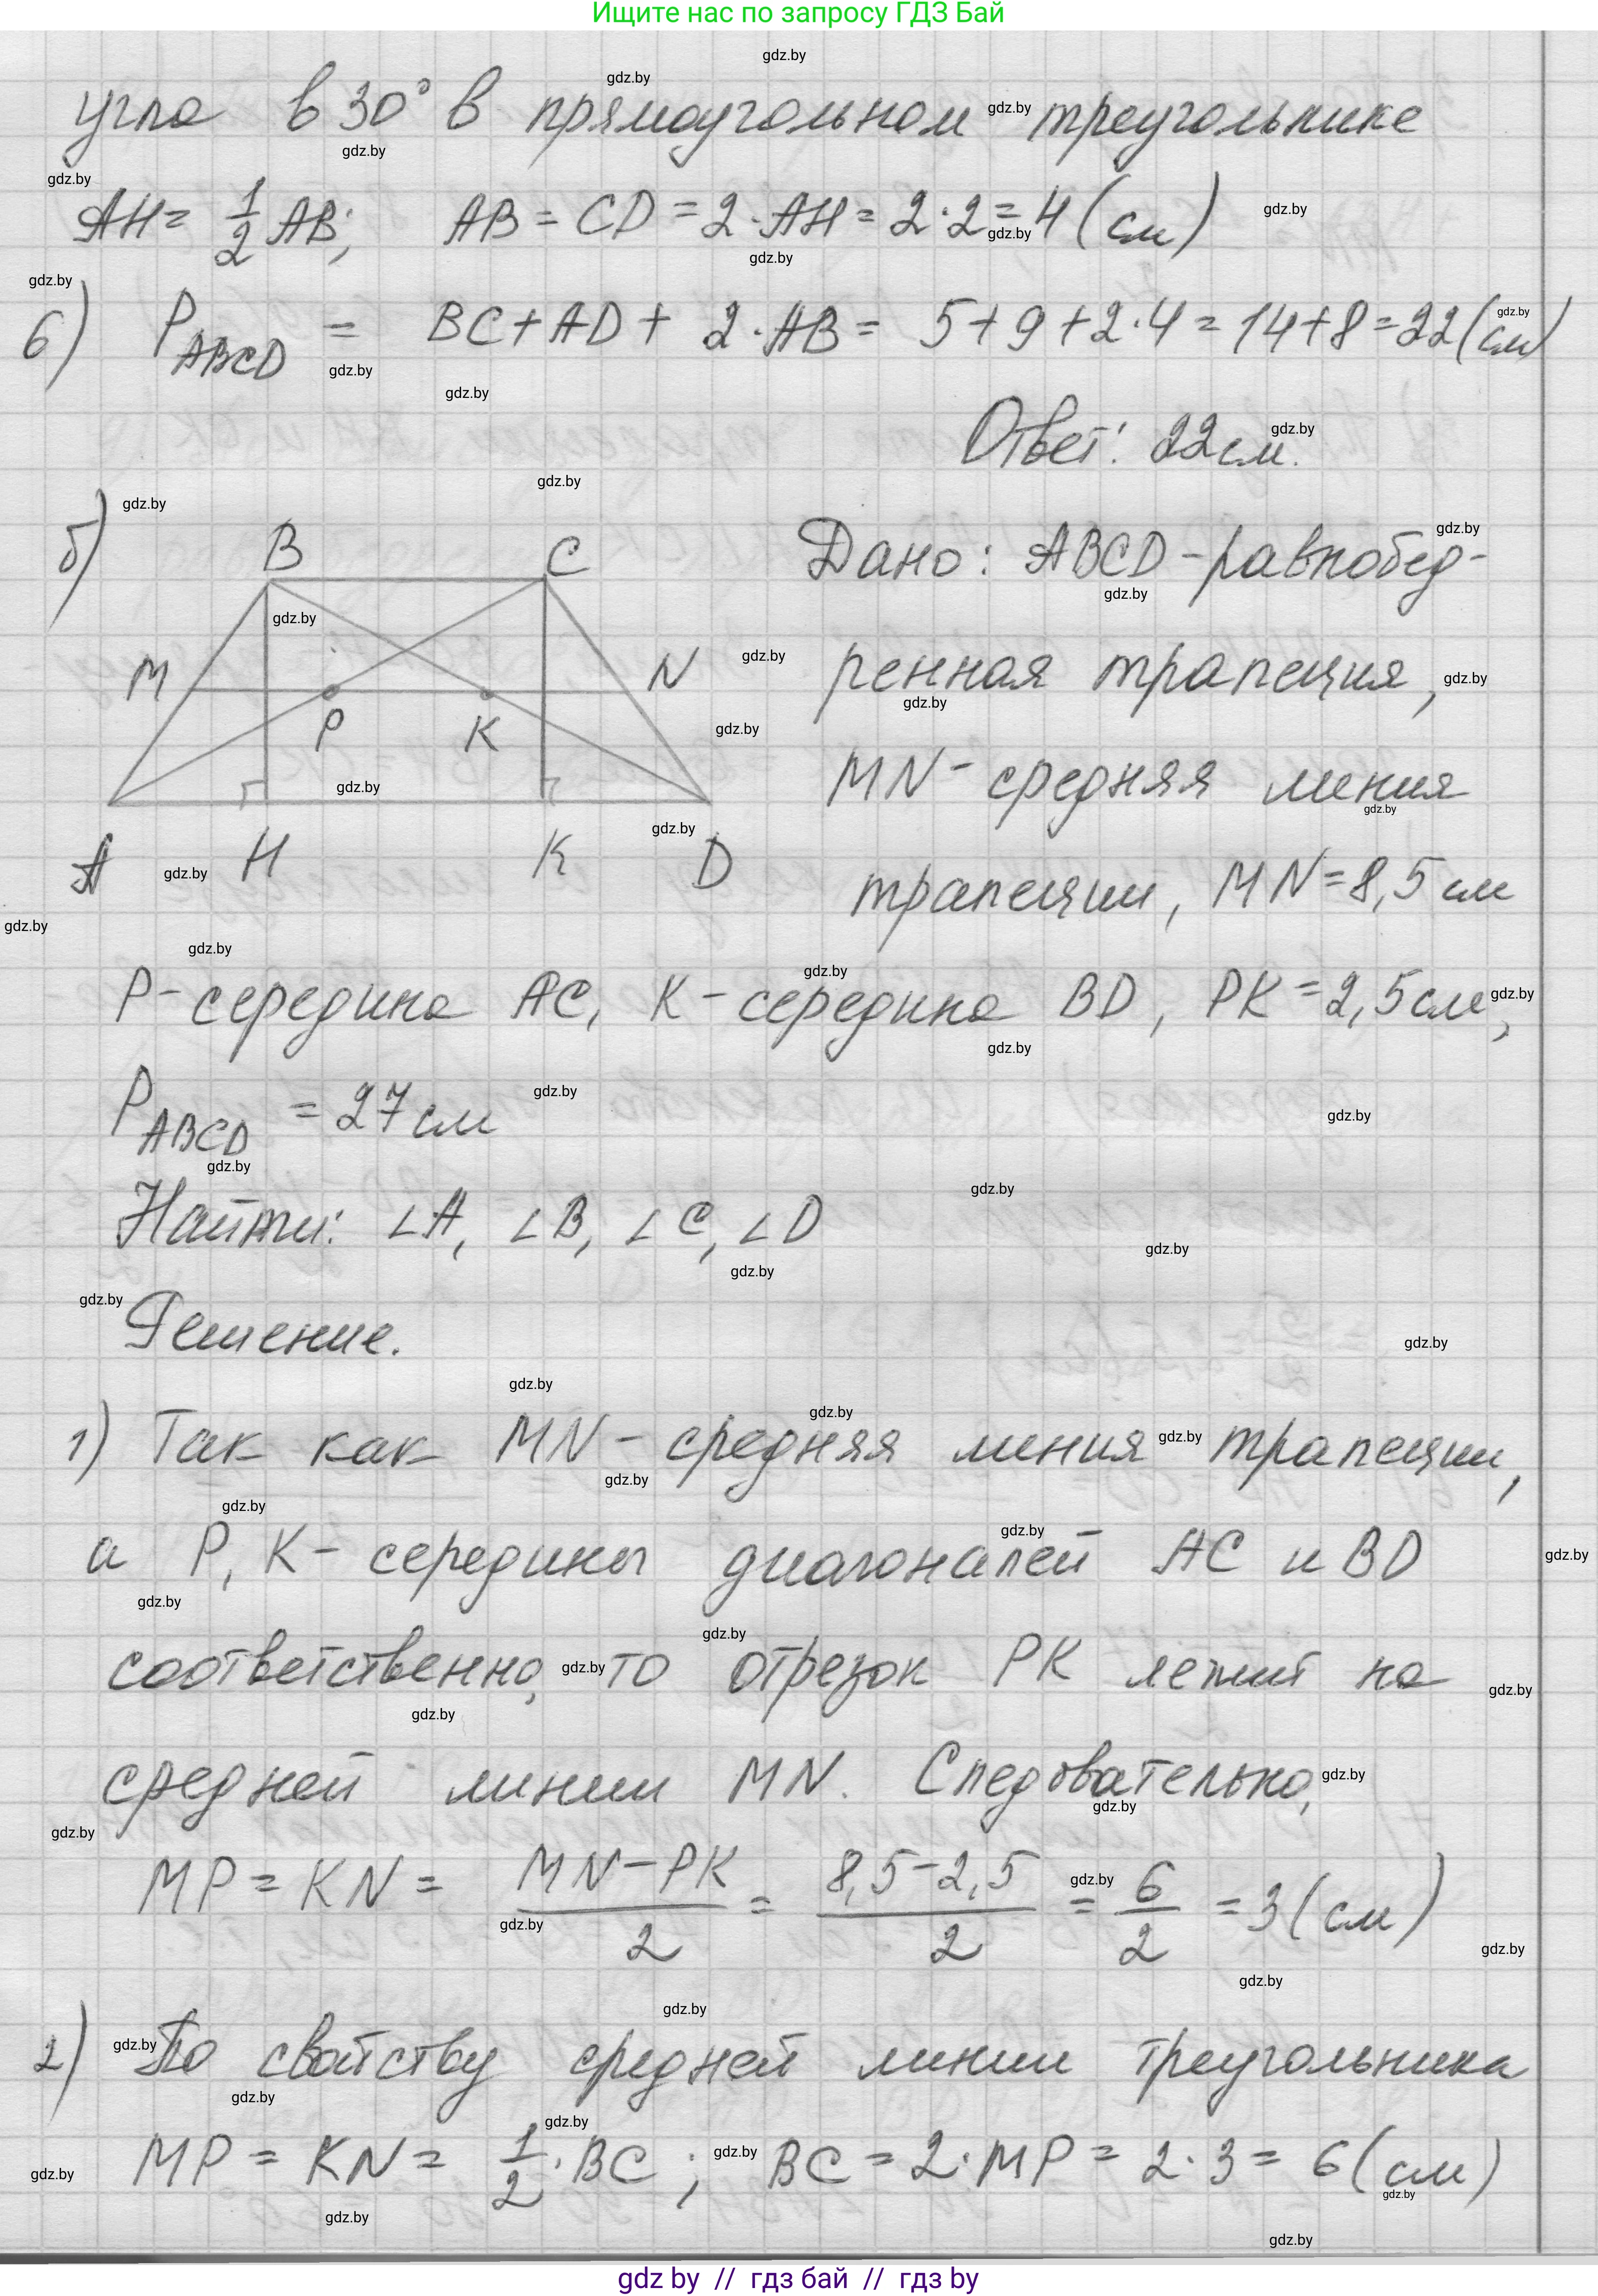 Ищите нас по запросу ГДЗ Бай
угла в 30° в прямоугольном треугольнике
AH = 1/2 AB; AB = CD = 2·AH = 2·2 = 4 (см)
6) P_ABCD = BC + AD + 2·AB = 5 + 9 + 2·4 = 14 + 8 = 22 (см)
Ответ: 22 см.
б)
B C
M N
P K
A H K D
Дано: ABCD - равнобед-
ренная трапеция,
MN - средняя линия
трапеции, MN = 8,5 см
P - середина AC, K - середина BD, PK = 2,5 см,
P_ABCD = 27 см
Найти: ∠A, ∠B, ∠C, ∠D
Решение.
1) Так как MN - средняя линия трапеции,
а P, K - середины диагоналей AC и BD
соответственно, то отрезок PK лежит на
средней линии MN. Следовательно,
MP = KN = (MN - PK)/2 = (8,5 - 2,5)/2 = 6/2 = 3 (см)
2) По свойству средней линии треугольника
MP = KN = 1/2·BC; BC = 2·MP = 2·3 = 6 (см)
gdz by // гдз бай // гдз by